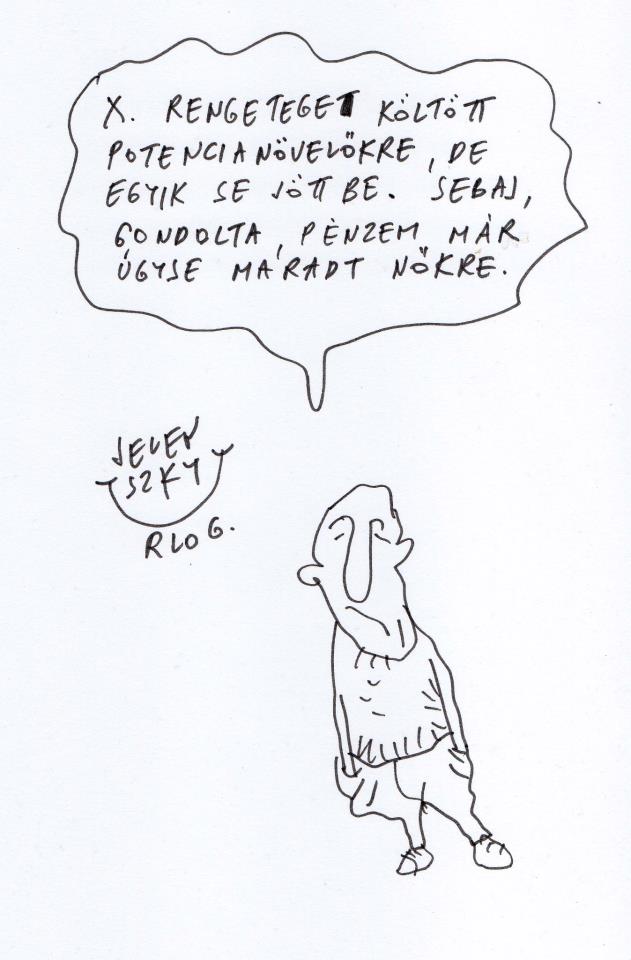 X. RENGETEGET KÖLTÖTT
POTENCIANÖVELŐKRE, DE
EGYIK SE JÖTT BE. SEBAJ,
GONDOLTA, PÉNZEM MÁR
ÚGYSE MARADT NŐKRE.
JELEN
SZKY
RLOG.